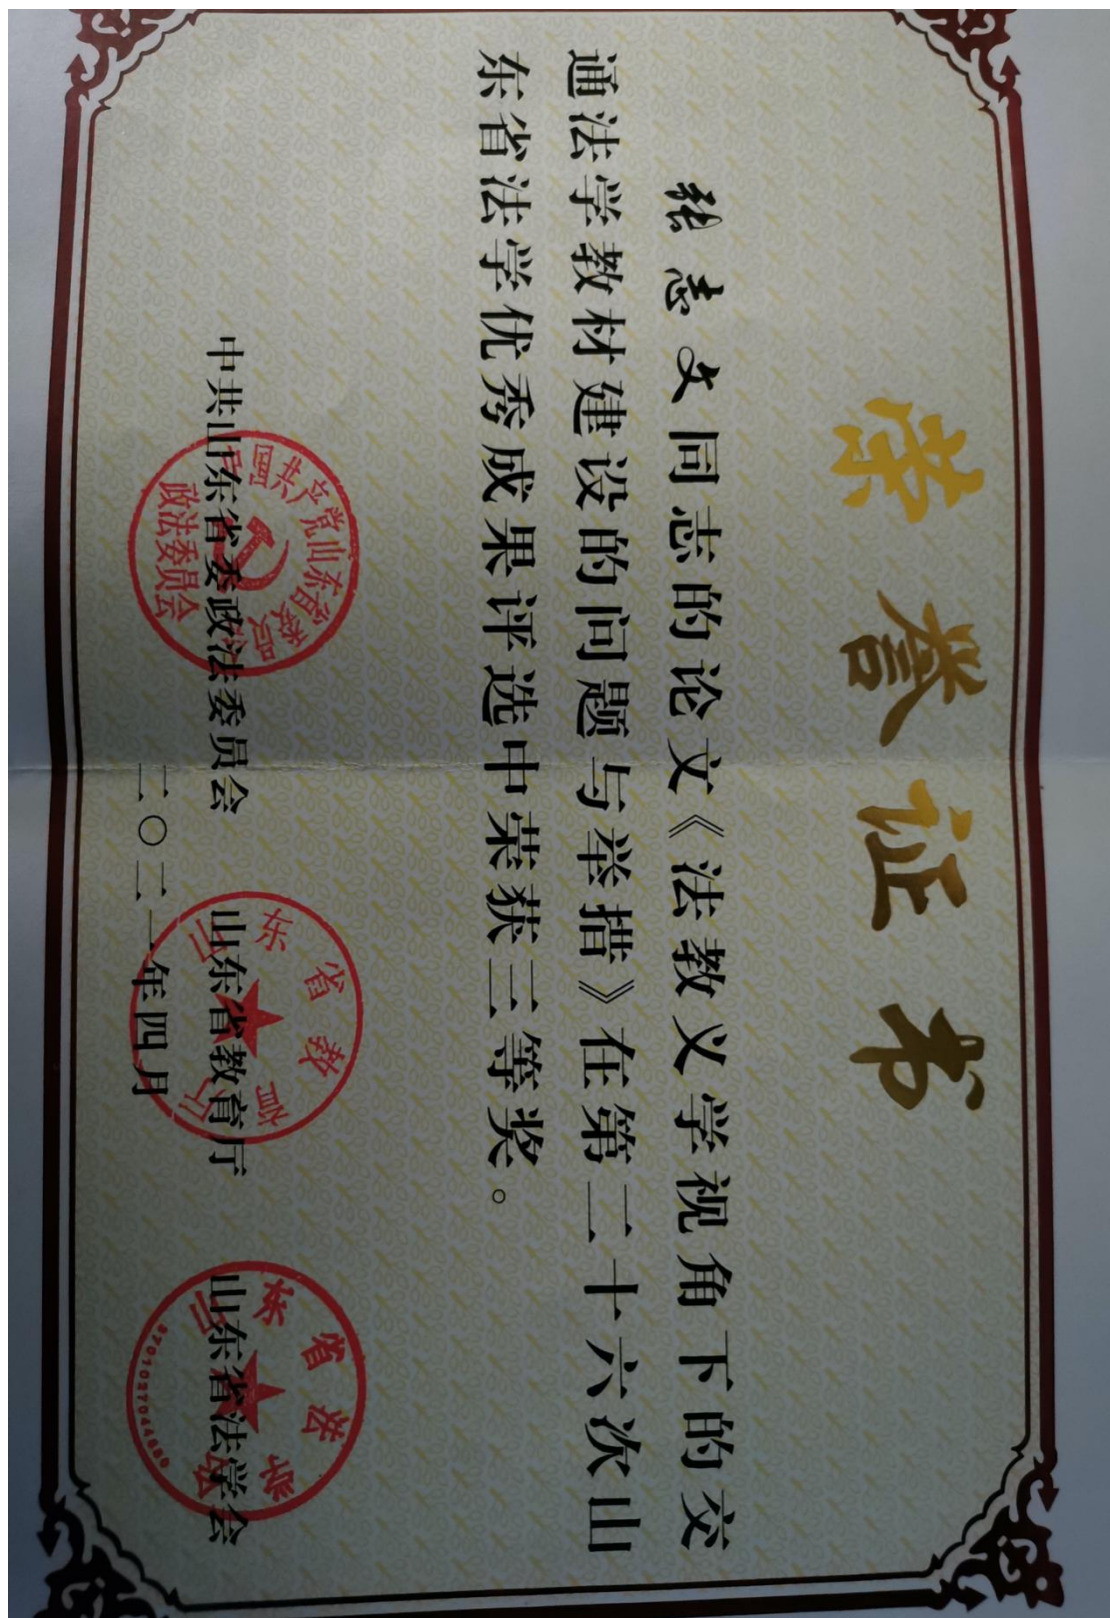 荣誉证书
张志文同志的论文《法教义学视角下的交
通法学教材建设的问题与举措》在第二十六次山
东省法学优秀成果评选中荣获三等奖。
中共山东省委政法委员会 山东省教育厅 山东省法学会
二〇二一年四月
中国共产党山东省委员会
政法委员会
山东省教育厅
山东省法学会